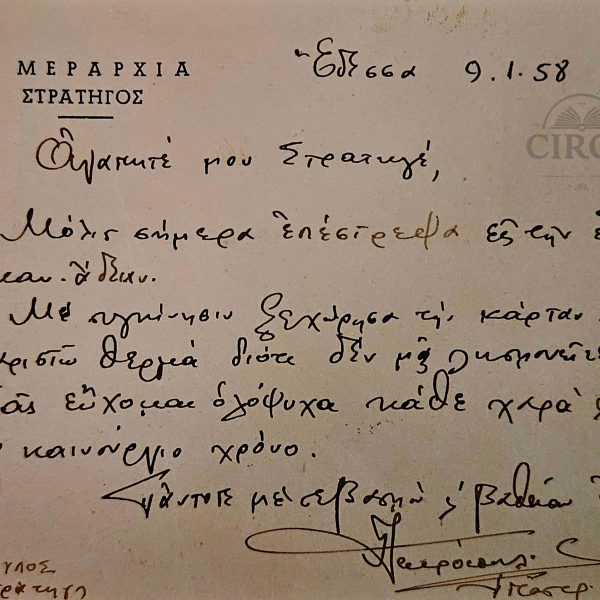 ΜΕΡΑΡΧΙΑ
ΣΤΡΑΤΗΓΟΣ
Ἔδεσσα 9.1.58
CIRC
Ἀγαπητέ μου Στρατηγέ,
Μόλις σήμερα ἐπέστρεψα ἐξ τὴν
καν. ἄδειαν.
Μὲ συγκίνησιν ξεχώρησα τὴν κάρταν
ριστῶ θερμὰ διότι δὲν μᾶς λησμονεῖτε
ᾶς εὔχομαι ὁλόψυχα κάθε χαρὰ
καινούργιο χρόνο.
Πάντοτε μὲ σεβασμὸ
ΥΛΟΣ